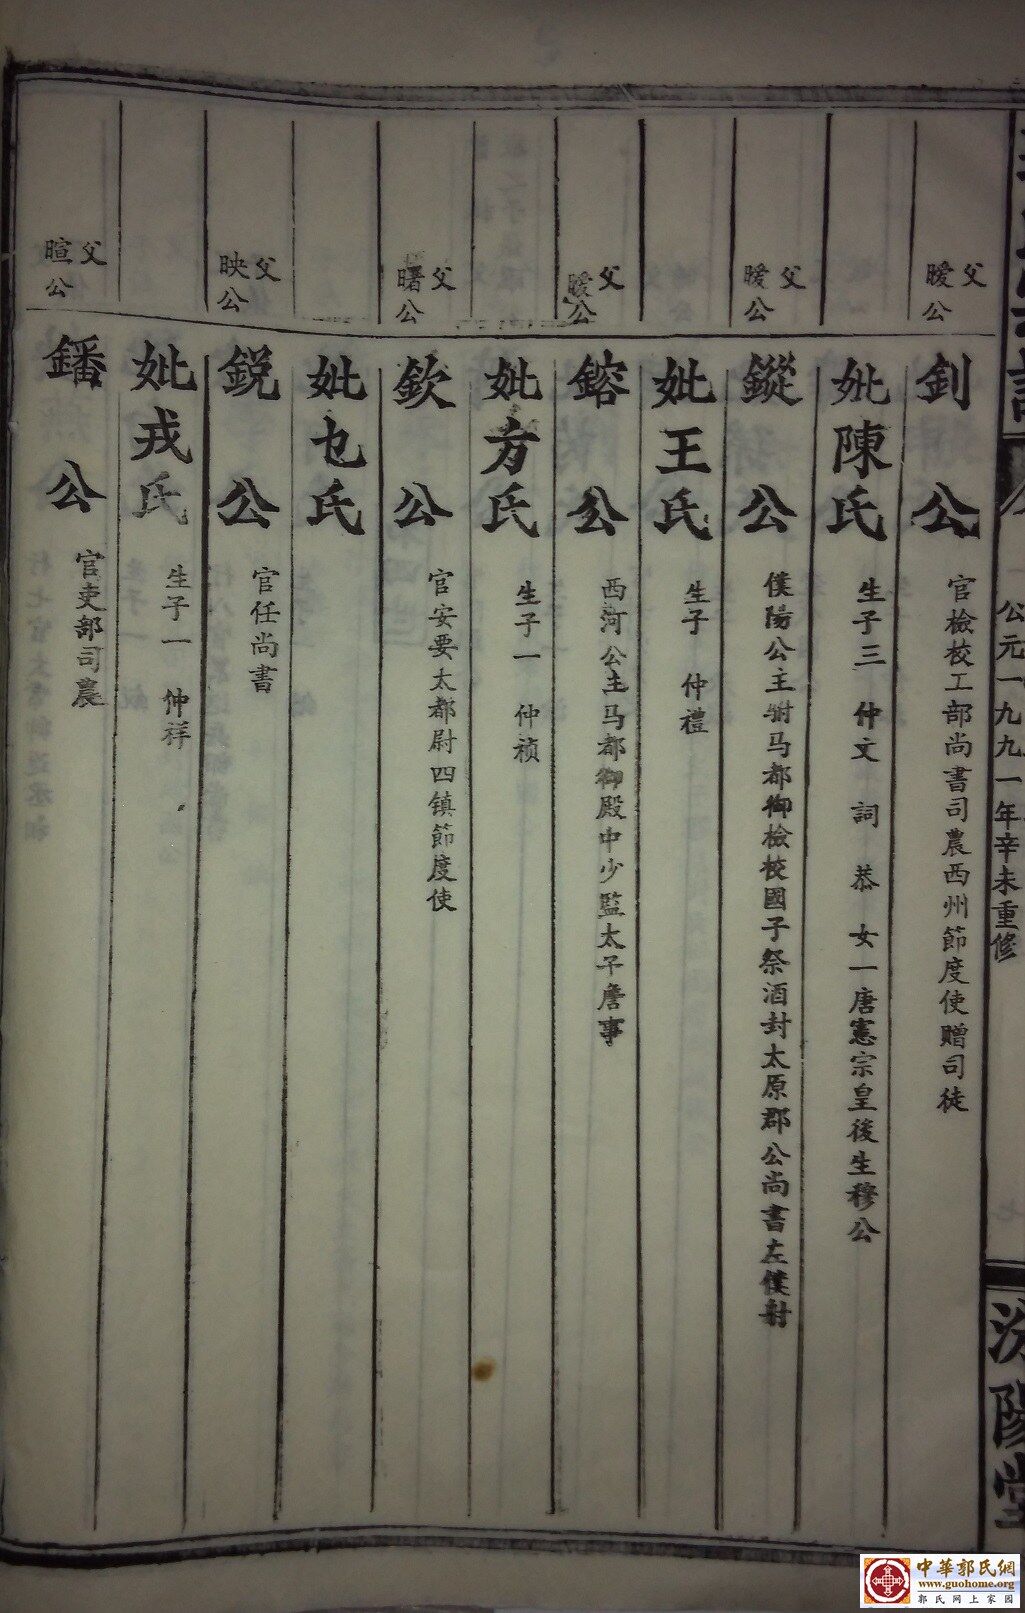 公元一九九一年辛未重修
汾陽堂
父
曖公
釗公
官檢校工部尚書司農西州節度使贈司徒
妣陳氏
生子三 仲文 詞 恭 女一唐憲宗皇後生穆公
父
曖公
鏦公
僕陽公王駙马都御檢校國子祭酒封太原郡公尚書左僕射
妣王氏
生子 仲禮
父
曖公
鎔公
西河公主马都御殿中少監太子詹事
妣方氏
生子一 仲祯
父
曙公
欽公
官安要太都尉四镇節度使
妣乜氏
父
映公
鋭公
官任尚書
妣戎氏
生子一 仲祥
父
暄公
鐇公
官吏部司農
中華郭氏網
www.guohome.org
郭氏网上家园